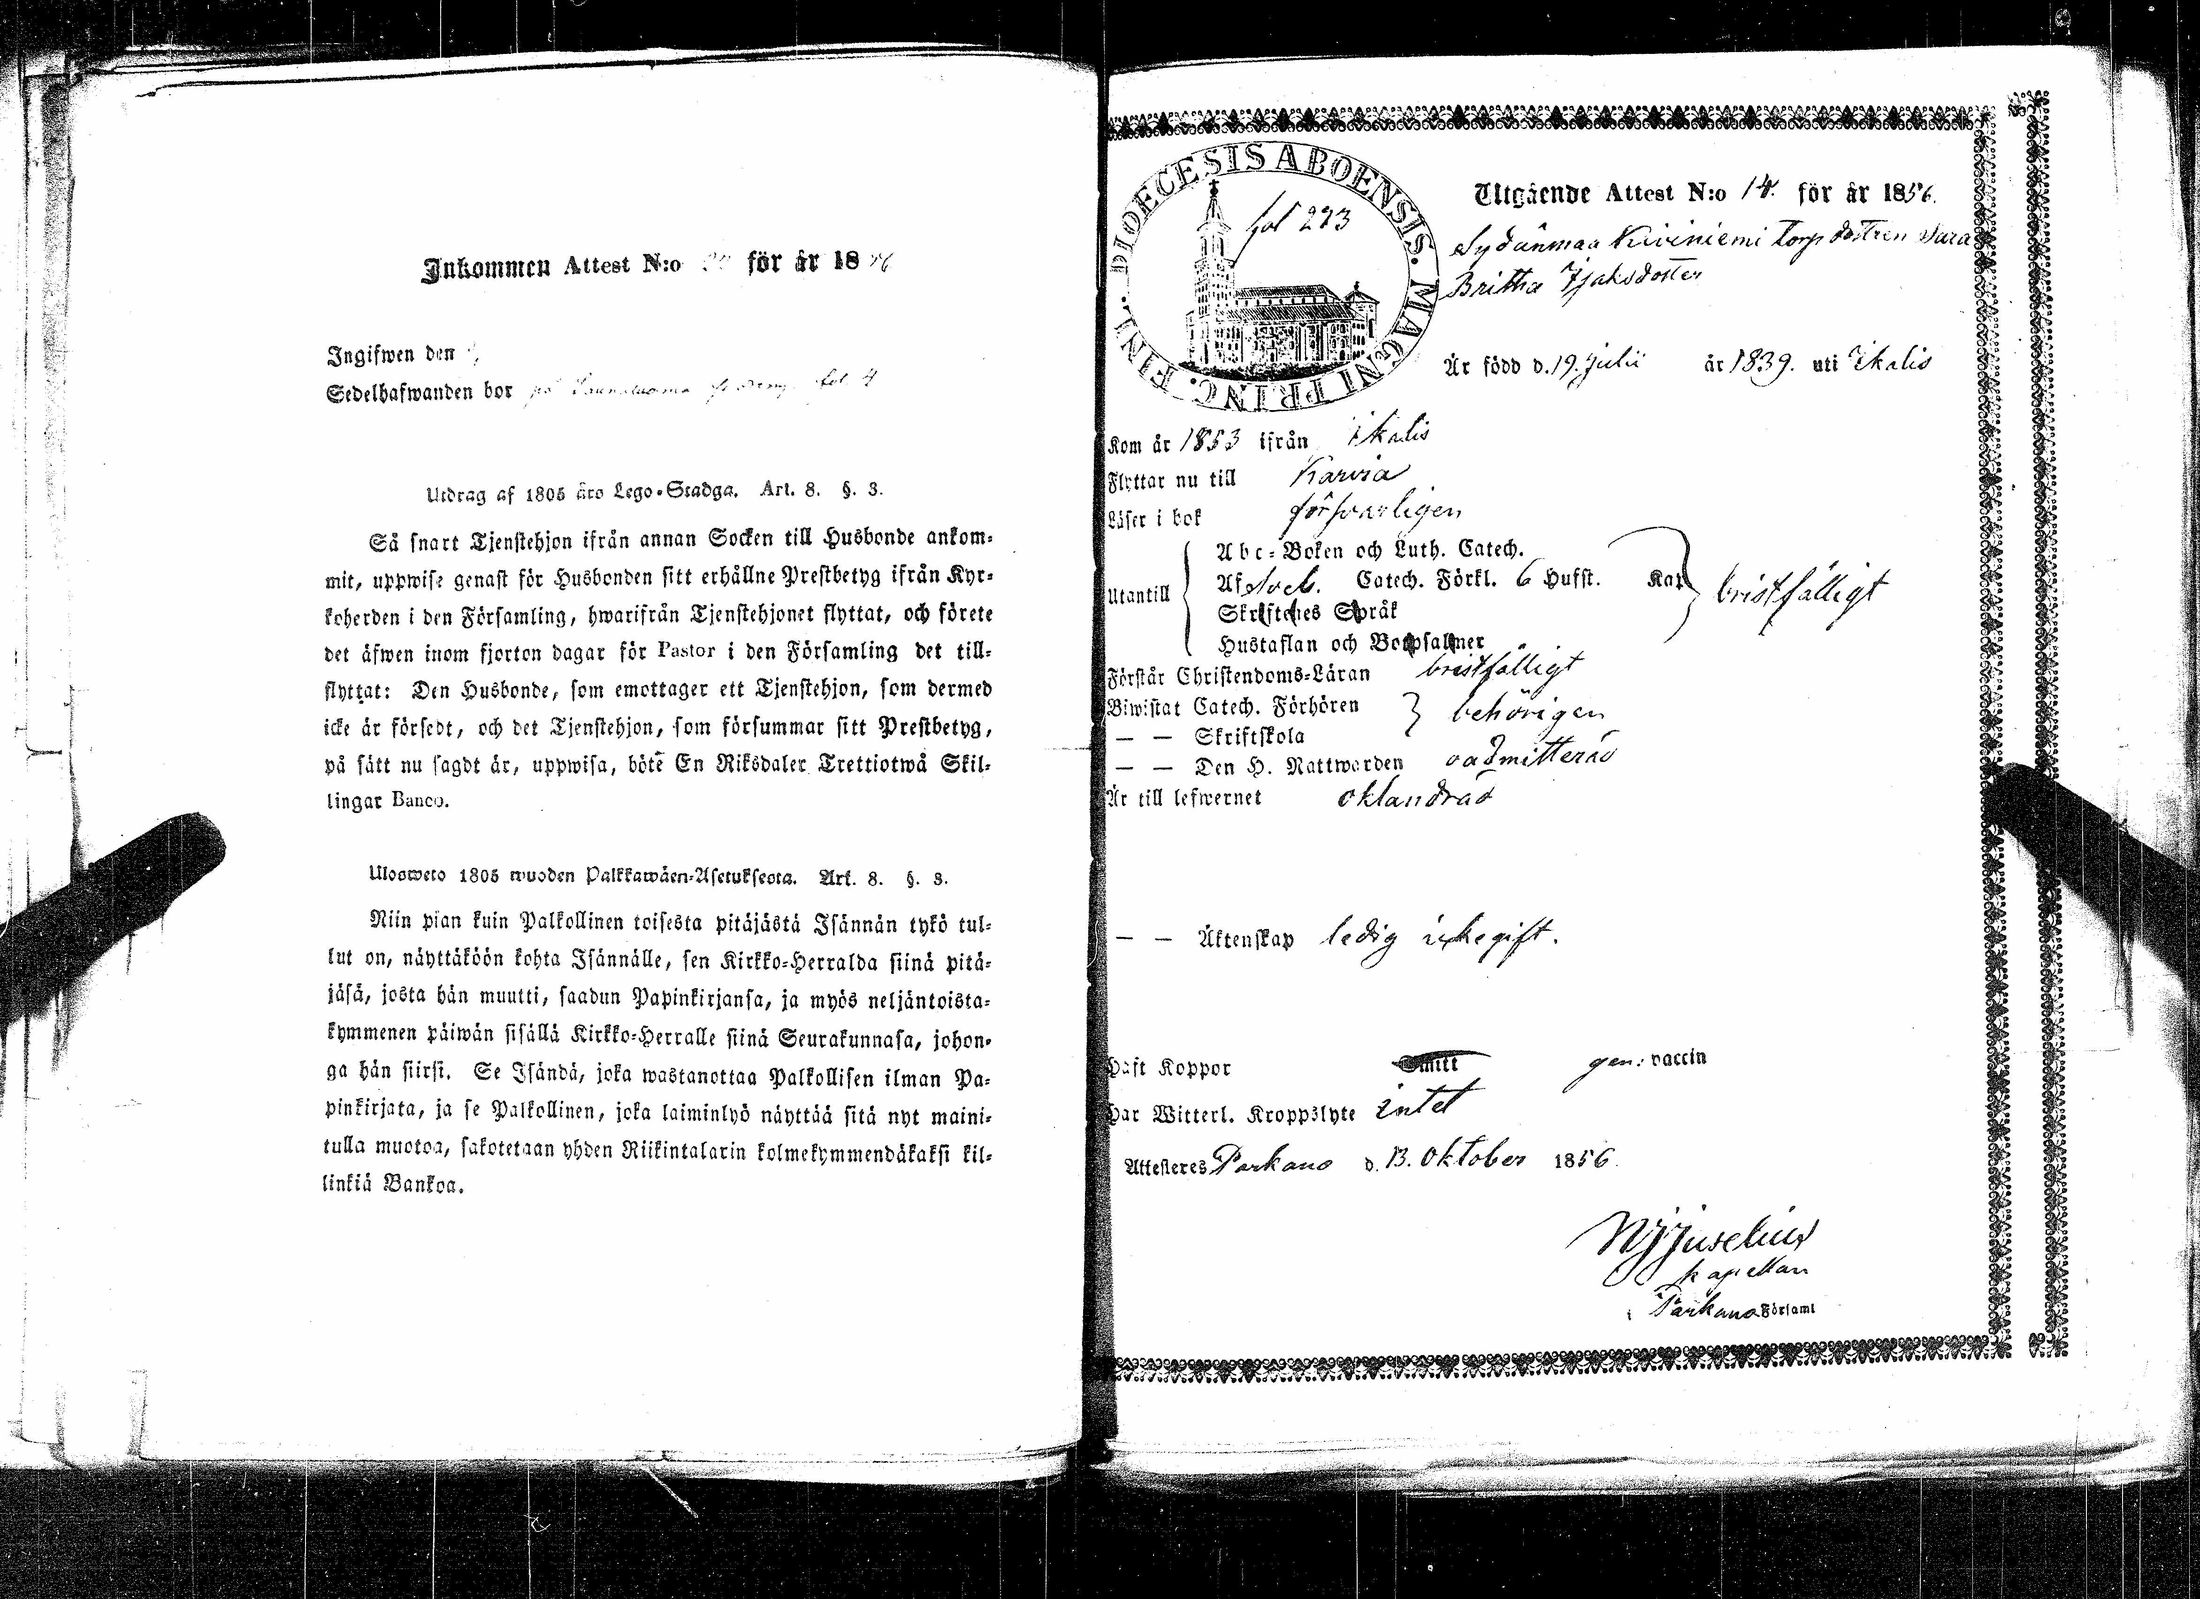 Inkommen Attest N:o för år 1856
Ingifwen den
Sedelhafwanden bor på fol 4
Utdrag af 1805 års Lego-Stadga. Art. 8. §. 3.
Så snart Tjenstehjon ifrån annan Socken till Husbonde ankom-
mit, uppwise genast för Husbonden sitt erhållne Prestbetyg ifrån Kyr-
koherden i den Församling, hwarifrån Tjenstehjonet flyttat, och förete
det äfwen inom fjorton dagar för Pastor i den Församling det till-
flyttat: Den Husbonde, som emottager ett Tjenstehjon, som dermed
icke är försedt, och det Tjenstehjon, som försummar sitt Prestbetyg,
på sätt nu sagdt är, uppwisa, böte En Riksdaler Trettiotwå Skil-
lingar Banco.
Ulosweto 1805 wuoden Palkkawäen-Asetuksesta. Art. 8. §. 3.
Niin pian kuin Palkollinen toisesta pitäjästä Isännän tykö tul-
lut on, näyttäköön kohta Isännälle, sen Kirkko-Herralda siinä pitä-
jäsä, josta hän muutti, saadun Papinkirjansa, ja myös neljäntoista-
kymmenen päiwän sisällä Kirkko-Herralle siinä Seurakunnasa, johon-
ga hän siirsi. Se Isändä, joka wastanottaa Palkollisen ilman Pa-
pinkirjata, ja se Palkollinen, joka laiminlyö näyttää sitä nyt maini-
tulla muotoa, sakotetaan yhden Riikintalarin kolmekymmendäkaksi kil-
linkiä Bankoa.
DIOECESIS ABOENSIS. MAGNI PRINC. FINL.
fol 273
Utgående Attest N:o 14. för år 1856.
Sydänmaa Kiviniemi torp dottren Sara
Britha Isaksdotter
Är född d. 19. Julii år 1839. uti Ikalis
Kom år 1853 ifrån Ikalis
Flyttar nu till Karvia
Läser i bok försvarligen
Utantill
Abc-Boken och Luth. Catech.
Af Sveb. Catech. Förkl. 6 Hufst. Kap
Skriftenes Språk
Hustaflan och Botpsalmer
bristfälligt
Förstår Christendoms-Läran bristfälligt
Biwistat Catech. Förhören
— — Skriftskola
behörigen
— — Den H. Nattwarden oadmitterad
Är till lefwernet oklandrad
— — Äktenskap ledig ifr gift.
Haft Koppor Smitt gen: vaccin
Har Witterl. Kroppslyte intet
Attesteras Parkano d. 13. Oktober 1856.
Juselius
kapellan
i Parkano Församl